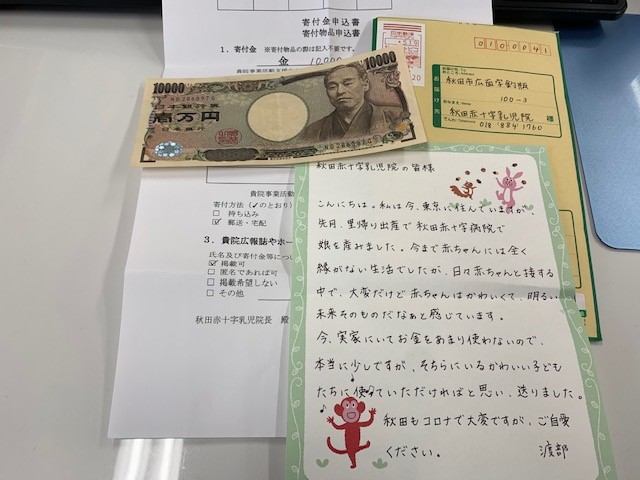 寄付金申込書
寄付物品申込書
1．寄付金 ※寄付物品の際は記入不要です。
金 10000
10000
10000
日本銀行券
壱万円
日本銀行
日本郵便
0100041
お届け先
秋田市広面字釣瓶
100-3
秋田赤十字乳児院
018 884 1760
貴院事業活動
寄付方法（✓のとおり）
□ 持ち込み
☑ 郵送・宅配
3．貴院広報誌やホー
氏名及び寄付金等につい
☑ 掲載可
□ 匿名であれば可
□ 掲載希望しない
□ その他
秋田赤十字乳児院長 殿
秋田赤十字乳児院の皆様
こんにちは。私は今、東京に住んでいますが、
先月、里帰り出産で秋田赤十字病院で
娘を産みました。今まで赤ちゃんには全く
縁がない生活でしたが、日々赤ちゃんと接する
中で、大変だけど赤ちゃんはかわいくて、明るい
未来そのものだなぁと感じています。
今、実家にいてお金をあまり使わないので、
本当に少しですが、そちらにいるかわいい子ども
たちに使っていただければと思い、送りました。
秋田もコロナで大変ですが、ご自愛
ください。 渡部